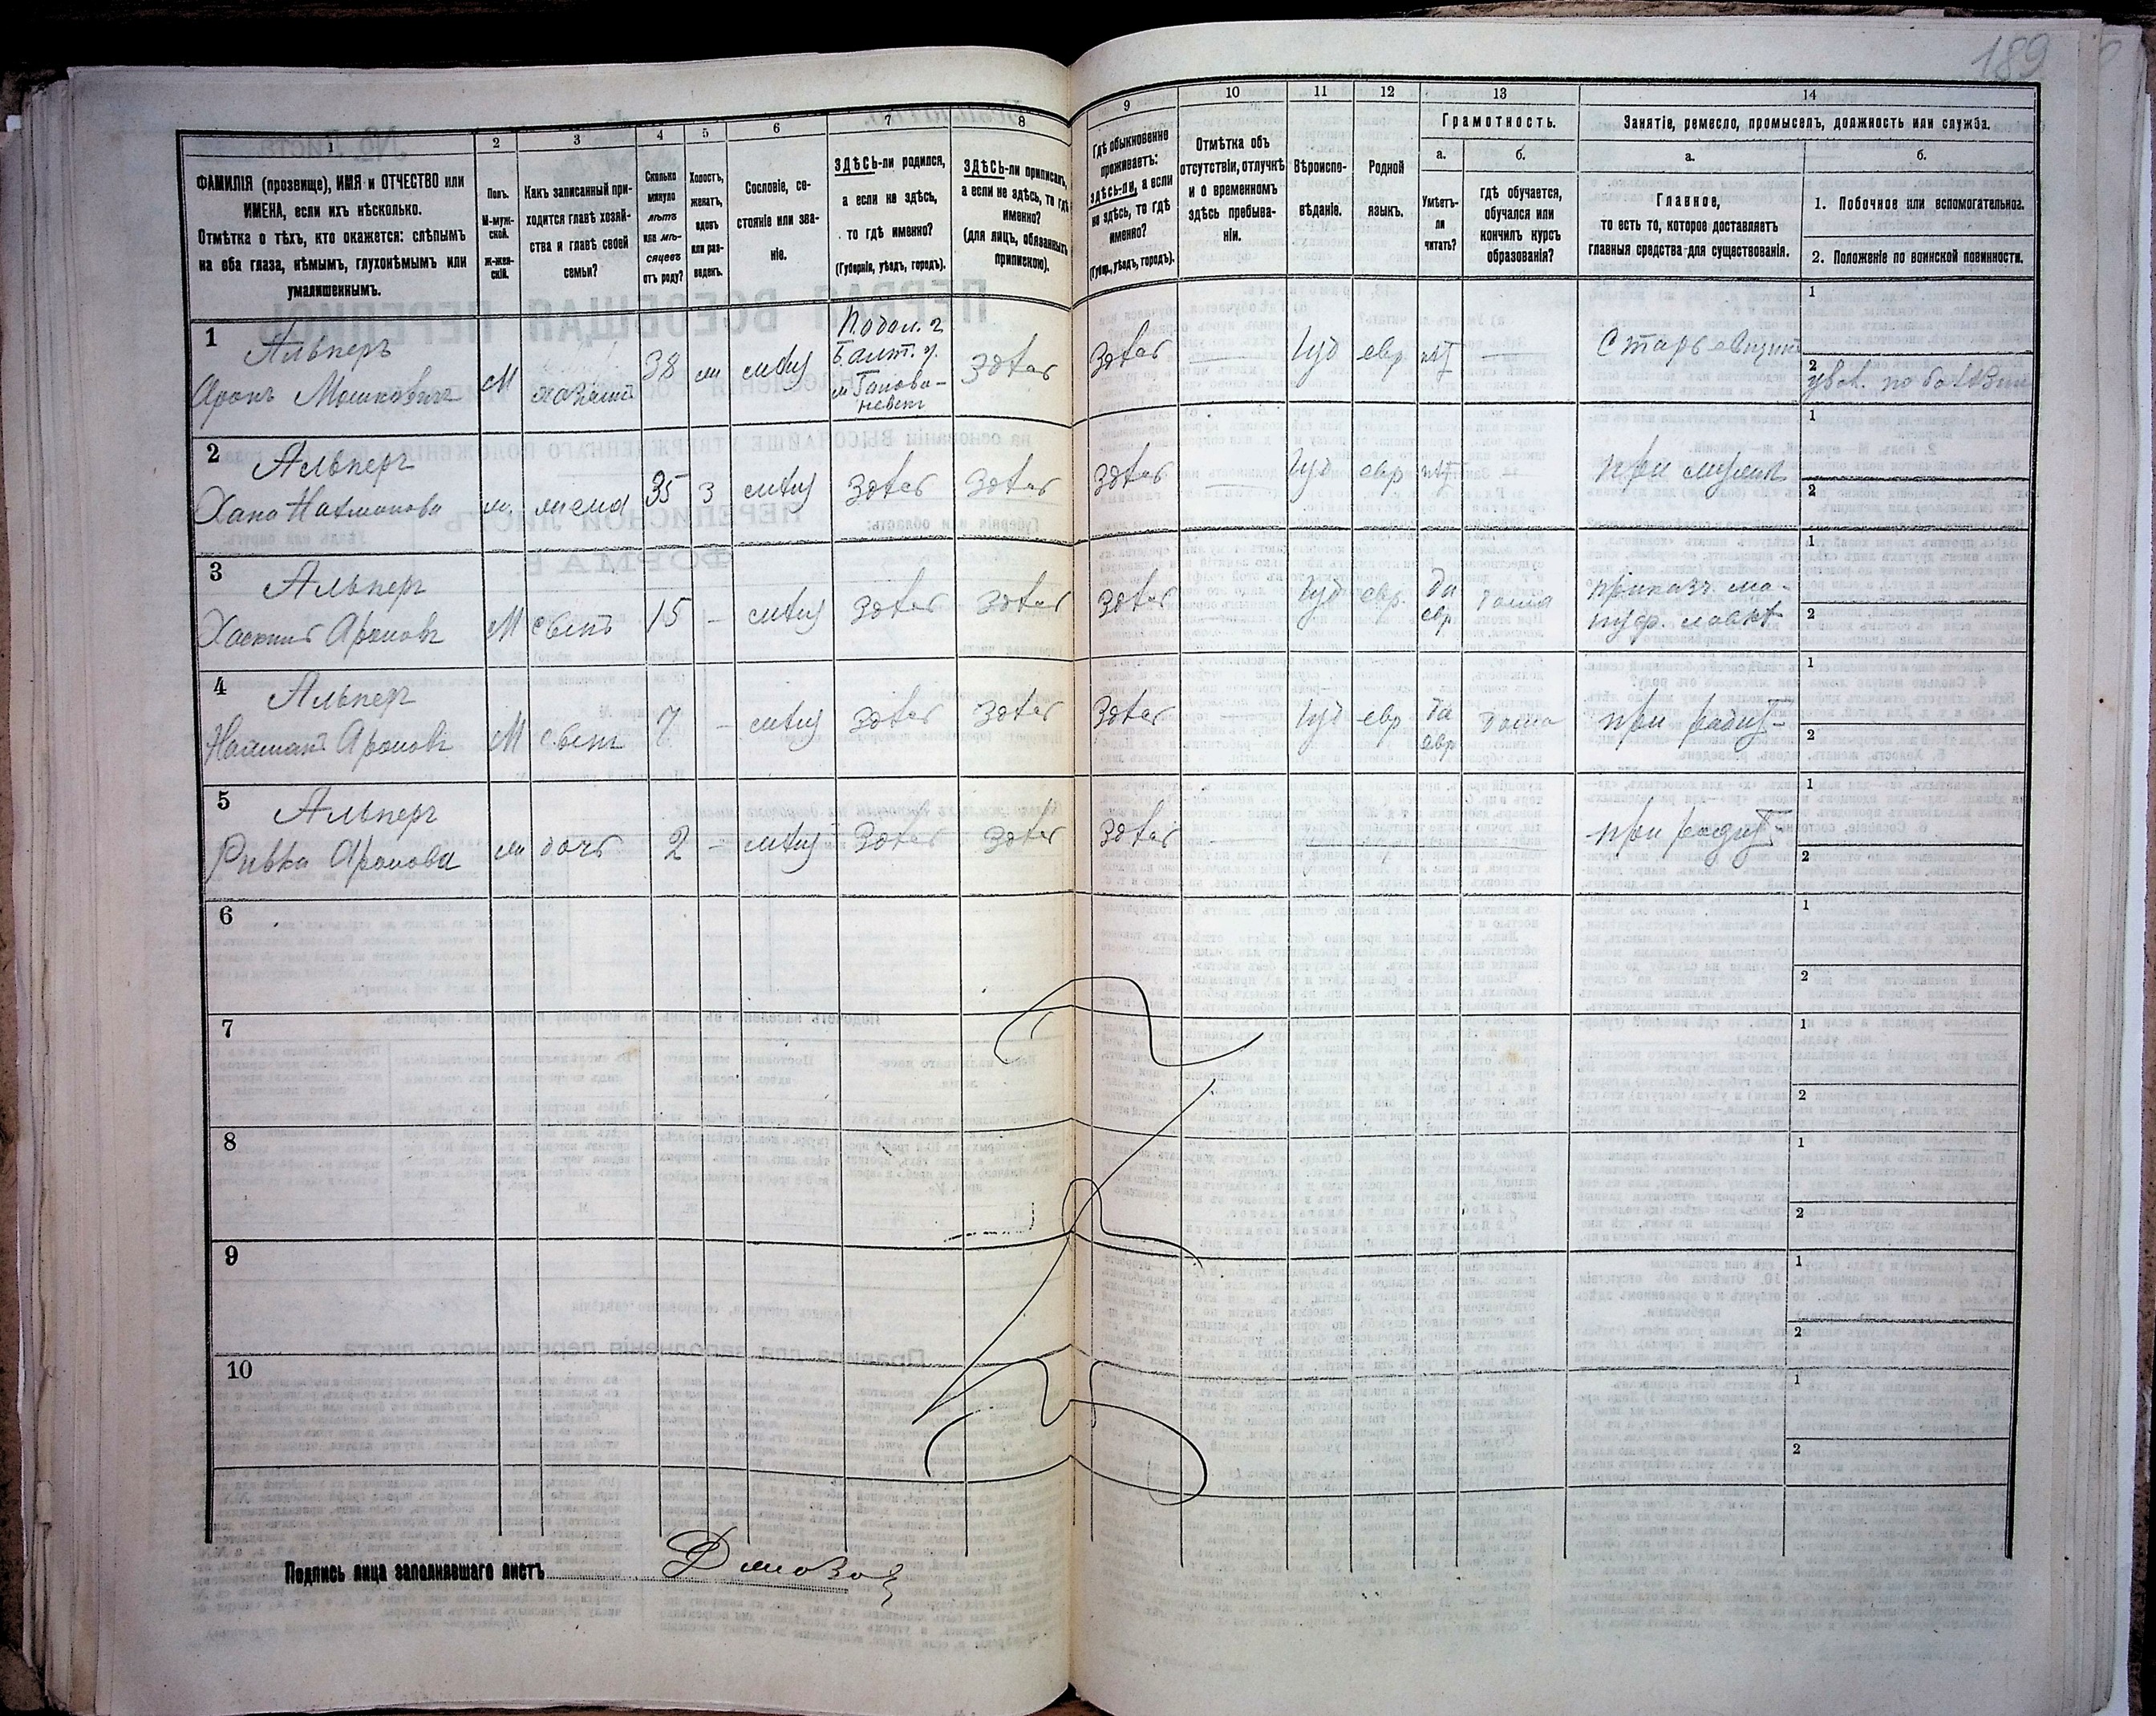 189
1
2
3
4
5
6
7
8
9
10
11
12
13
14
ФАМИЛІЯ (прозвище), ИМЯ и ОТЧЕСТВО или
ИМЕНА, если ихъ нѣсколько.
Отмѣтка о тѣхъ, кто окажется: слѣпымъ
на оба глаза, нѣмымъ, глухонѣмымъ или
умалишеннымъ.
Полъ.
М-муж-
ской.
ж-жен-
скій.
Какъ записанный при-
ходится главѣ хозяй-
ства и главѣ своей
семьи?
Сколько
минуло
лѣтъ
или мѣ-
сяцевъ
отъ роду?
Холостъ,
женатъ,
вдовъ
или раз-
веденъ.
Сословіе, со-
стояніе или зва-
ніе.
ЗДѢСЬ-ли родился,
а если не здѣсь,
то гдѣ именно?
(Губернія, уѣздъ, городъ).
ЗДѢСЬ-ли приписанъ,
а если не здѣсь, то гдѣ
именно?
(для лицъ, обязанныхъ
припискою).
Гдѣ обыкновенно
проживаетъ:
здѣсь-ли, а если
не здѣсь, то гдѣ
именно?
(Губер., уѣздъ, городъ).
Отмѣтка объ
отсутствіи, отлучкѣ
и о временномъ
здѣсь пребыва-
ніи.
Вѣроиспо-
вѣданіе.
Родной
языкъ.
Грамотность.
а.
Умѣетъ-
ли
читать?
б.
гдѣ обучается,
обучался или
кончилъ курсъ
образованія?
Занятіе, ремесло, промыселъ, должность или служба.
а.
Главное,
то есть то, которое доставляетъ
главныя средства для существованія.
б.
1. Побочное или вспомогательное.
2. Положеніе по воинской повинности.
1
Альперъ
Аронъ Мошковичъ
М
хозяинъ
38
ж
мѣщ
Подол. г
Балт. у.
м
здѣсь
здѣсь
—
Іуд
евр
нѣт
—
1
2
увол. по болѣзни
2
Альперъ
Хана Нахманова
ж.
жена
35
з
мѣщ
здѣсь
здѣсь
здѣсь
—
Іуд
евр
нѣт
при мужѣ
1
2
3
Альперъ
Хаскиль Ароновъ
М
сынъ
15
-
мѣщ
здѣсь
здѣсь
здѣсь
Іуд
евр.
да
евр
дома
приказч. ма-
нуф. лавкѣ
1
2
4
Альперъ
Нахманъ Ароновъ
М
сынъ
7
-
мѣщ
здѣсь
здѣсь
здѣсь
—
Іуд
евр
да
евр
дома
при родит-
1
2
5
Альперъ
Ривка Аронова
ж
дочь
2
-
мѣщ
здѣсь
здѣсь
здѣсь
—
при родит
2
6
1
2
7
1
2
8
1
2
9
1
2
10
1
2
Подпись лица заполнявшаго листъ